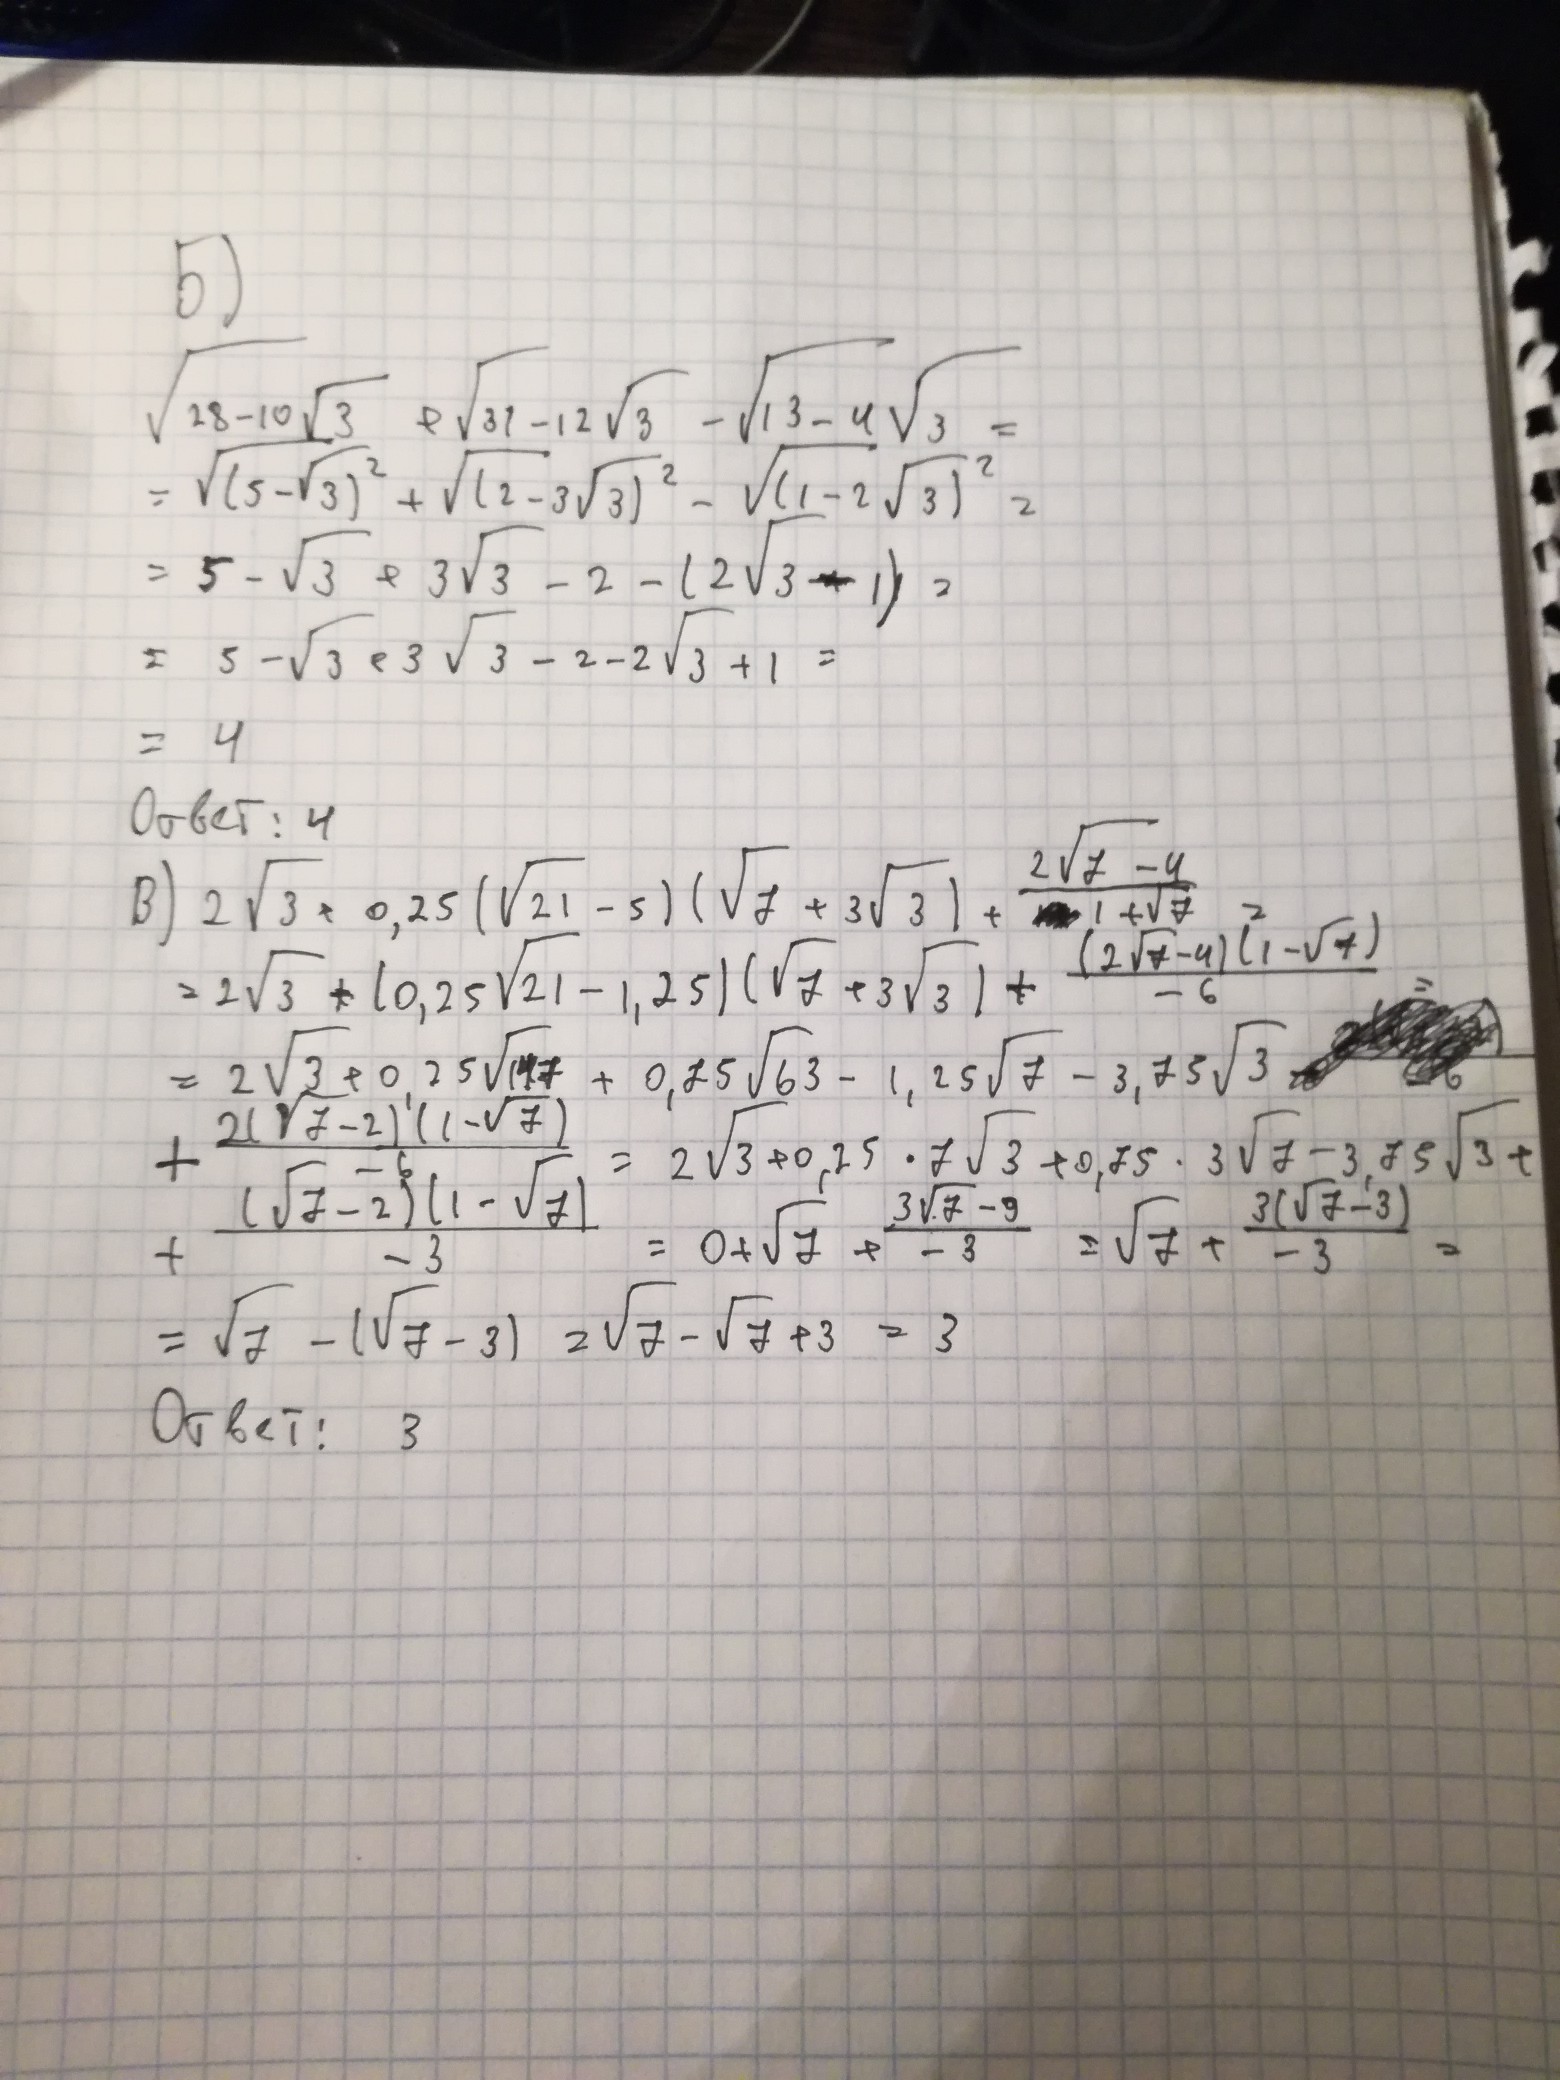 Б)
√(28-10√3) + √(31-12√3) - √(13-4√3) =
= √(5-√3)² + √(2-3√3)² - √(1-2√3)² =
= 5 - √3 + 3√3 - 2 - (2√3 - 1) =
= 5 - √3 + 3√3 - 2 - 2√3 + 1 =
= 4
Ответ: 4
В) 2√3 + 0,25(√21 - 5)(√7 + 3√3) + (2√7 - 4)/(1 + √7) =
= 2√3 + (0,25√21 - 1,25)(√7 + 3√3) + (2√7-4)(1-√7)/-6 =
= 2√3 + 0,25√147 + 0,75√63 - 1,25√7 - 3,75√3
+ 2(√7-2)(1-√7)/-6 = 2√3 + 0,25 · 7√3 + 0,75 · 3√7 - 3,75√3 +
+ (√7-2)(1-√7)/-3 = 0 + √7 + (3√7-9)/-3 = √7 + 3(√7-3)/-3 =
= √7 - (√7 - 3) = √7 - √7 + 3 = 3
Ответ: 3